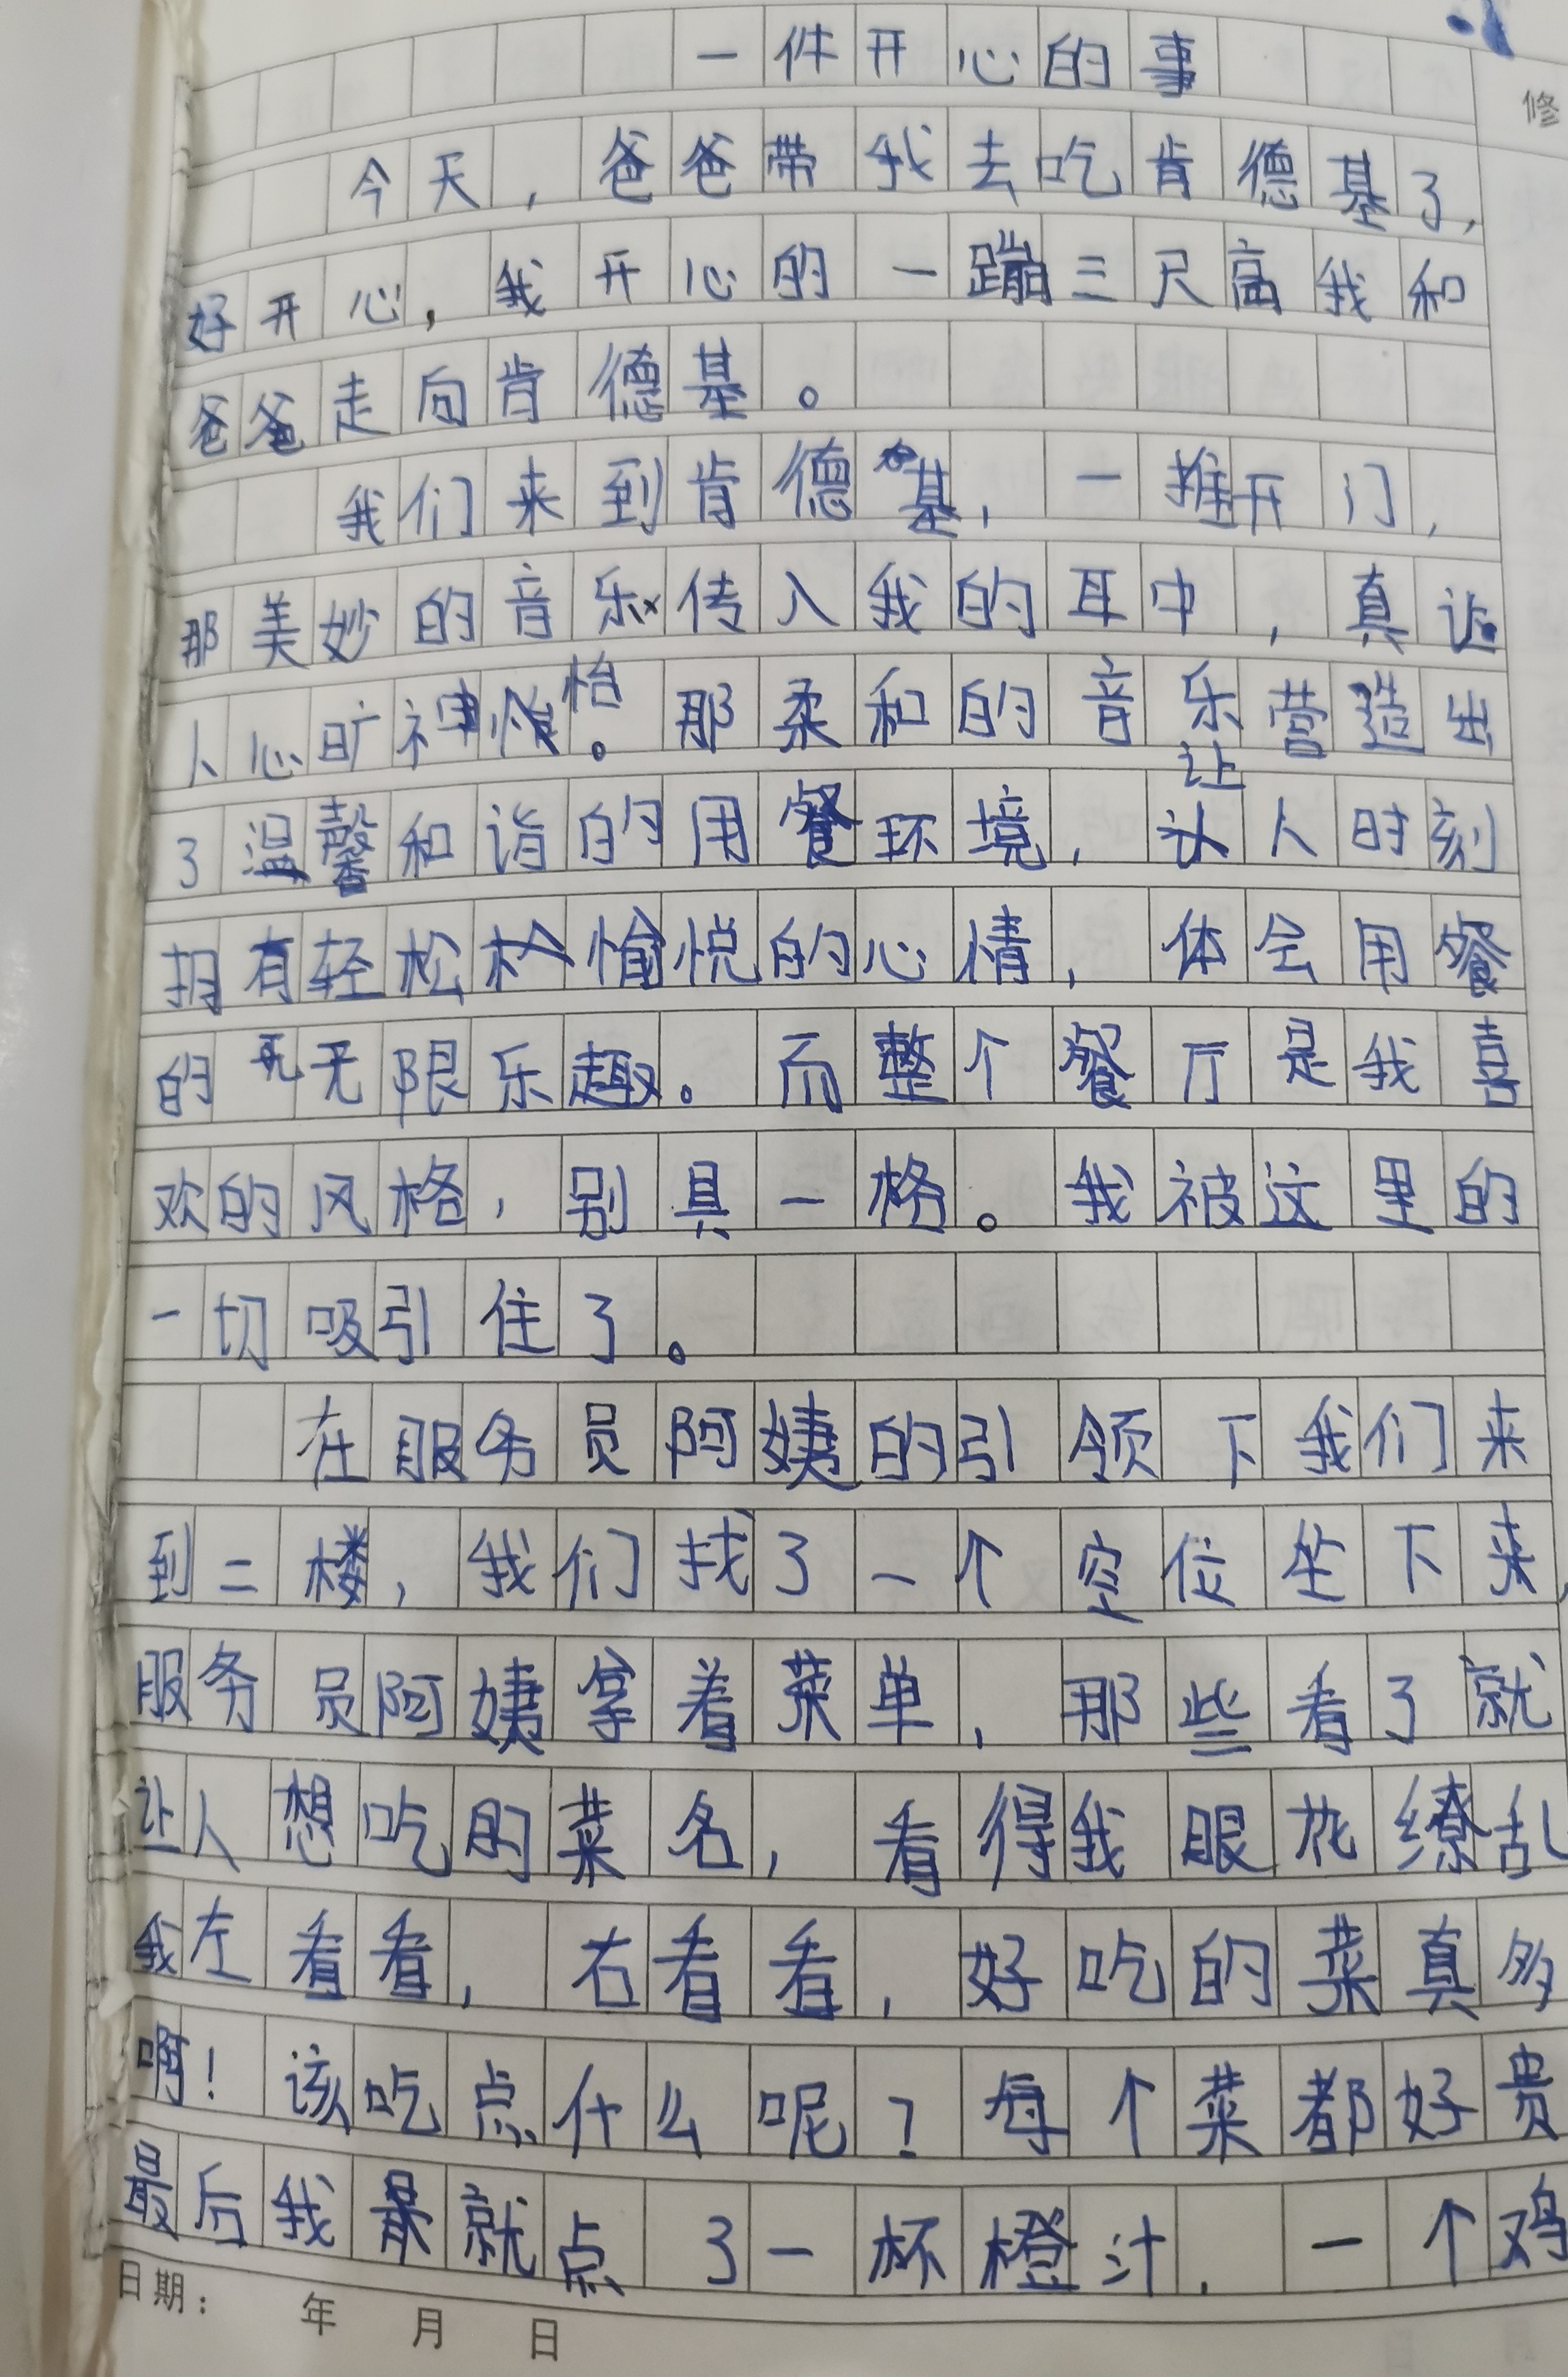 一件开心的事
修
今天，爸爸带我去吃肯德基了，
好开心，我开心的一蹦三尺高我和
爸爸走向肯德基。
我们来到肯德基，一推开门，
那美妙的音乐传入我的耳中，真让
人心旷神怡。那柔和的音乐营造出
了温馨和谐的用餐环境，让人时刻
拥有轻松愉悦的心情，体会用餐
的无限乐趣。而整个餐厅是我喜
欢的风格，别具一格。我被这里的
一切吸引住了。
在服务员阿姨的引领下我们来
到二楼，我们找了一个空位坐下来，
服务员阿姨拿着菜单，那些看了就
让人想吃的菜名，看得我眼花缭乱
我左看看，右看看，好吃的菜真多
啊！该吃点什么呢？每个菜都好贵
最后我就点了一杯橙汁，一个鸡
日期： 年 月 日